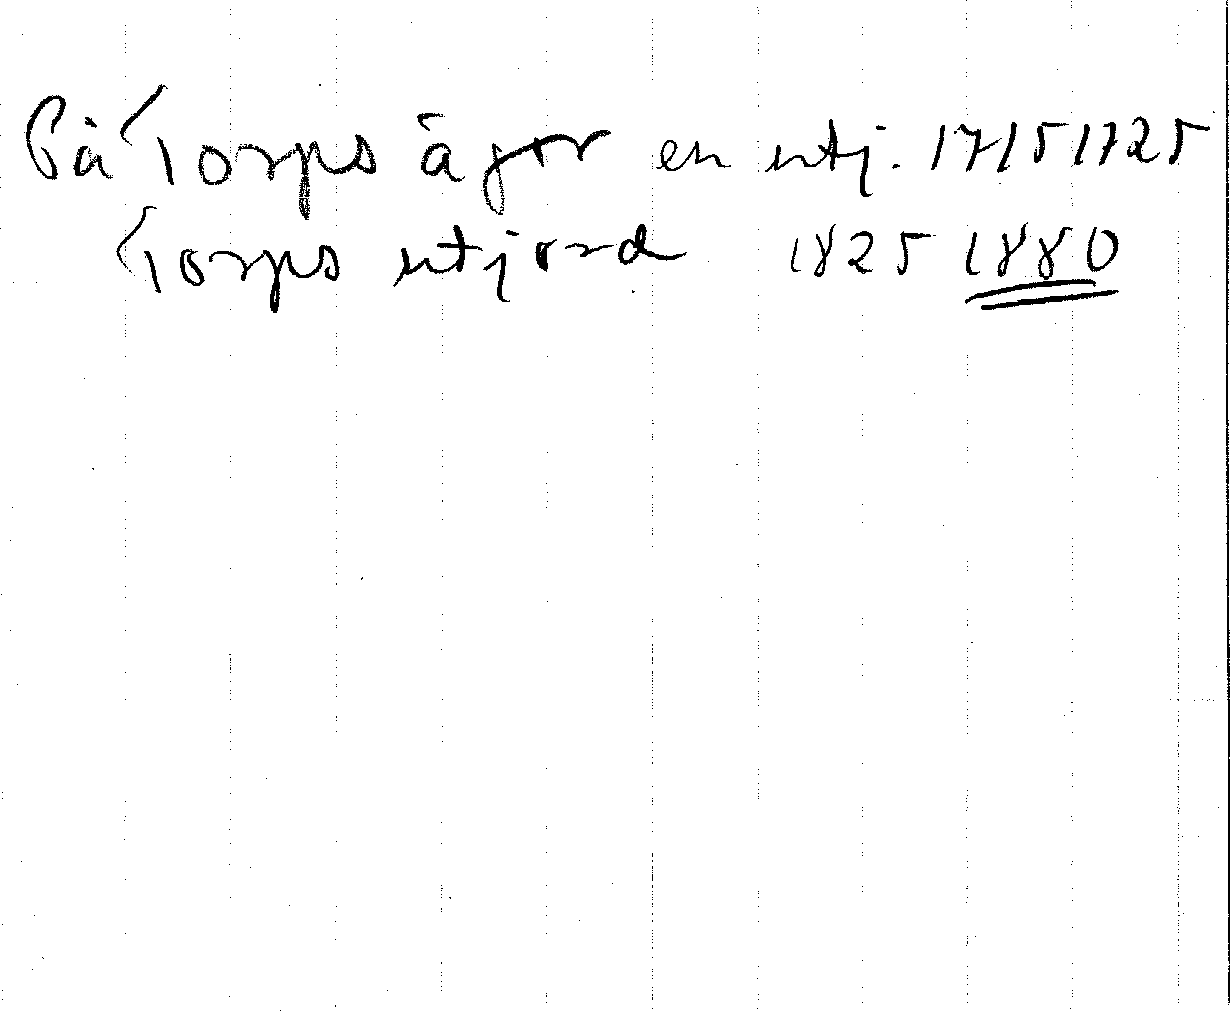 På Torps ägor en utj. 1715 1725
Torps utjord 1825 1880